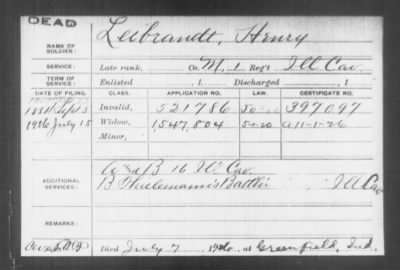 DEAD
NAME OF SOLDIER: Leibrandt, Henry
SERVICE: Late rank, Co. M, 1 Reg't Ill Cav.
TERM OF SERVICE: Enlisted , 1 Discharged , 1
DATE OF FILING. CLASS. APPLICATION NO. LAW. CERTIFICATE NO.
Sept 5 Invalid, 521786 397097
1926 July 15 Widow, 1547,804 5-1-20 A 11-1-26
Minor,
ADDITIONAL SERVICES: B 16 Ill Cav
B Thielemann's Battln Ill Cav
REMARKS:
Died July 7 1926 at Greenfield, Ind.